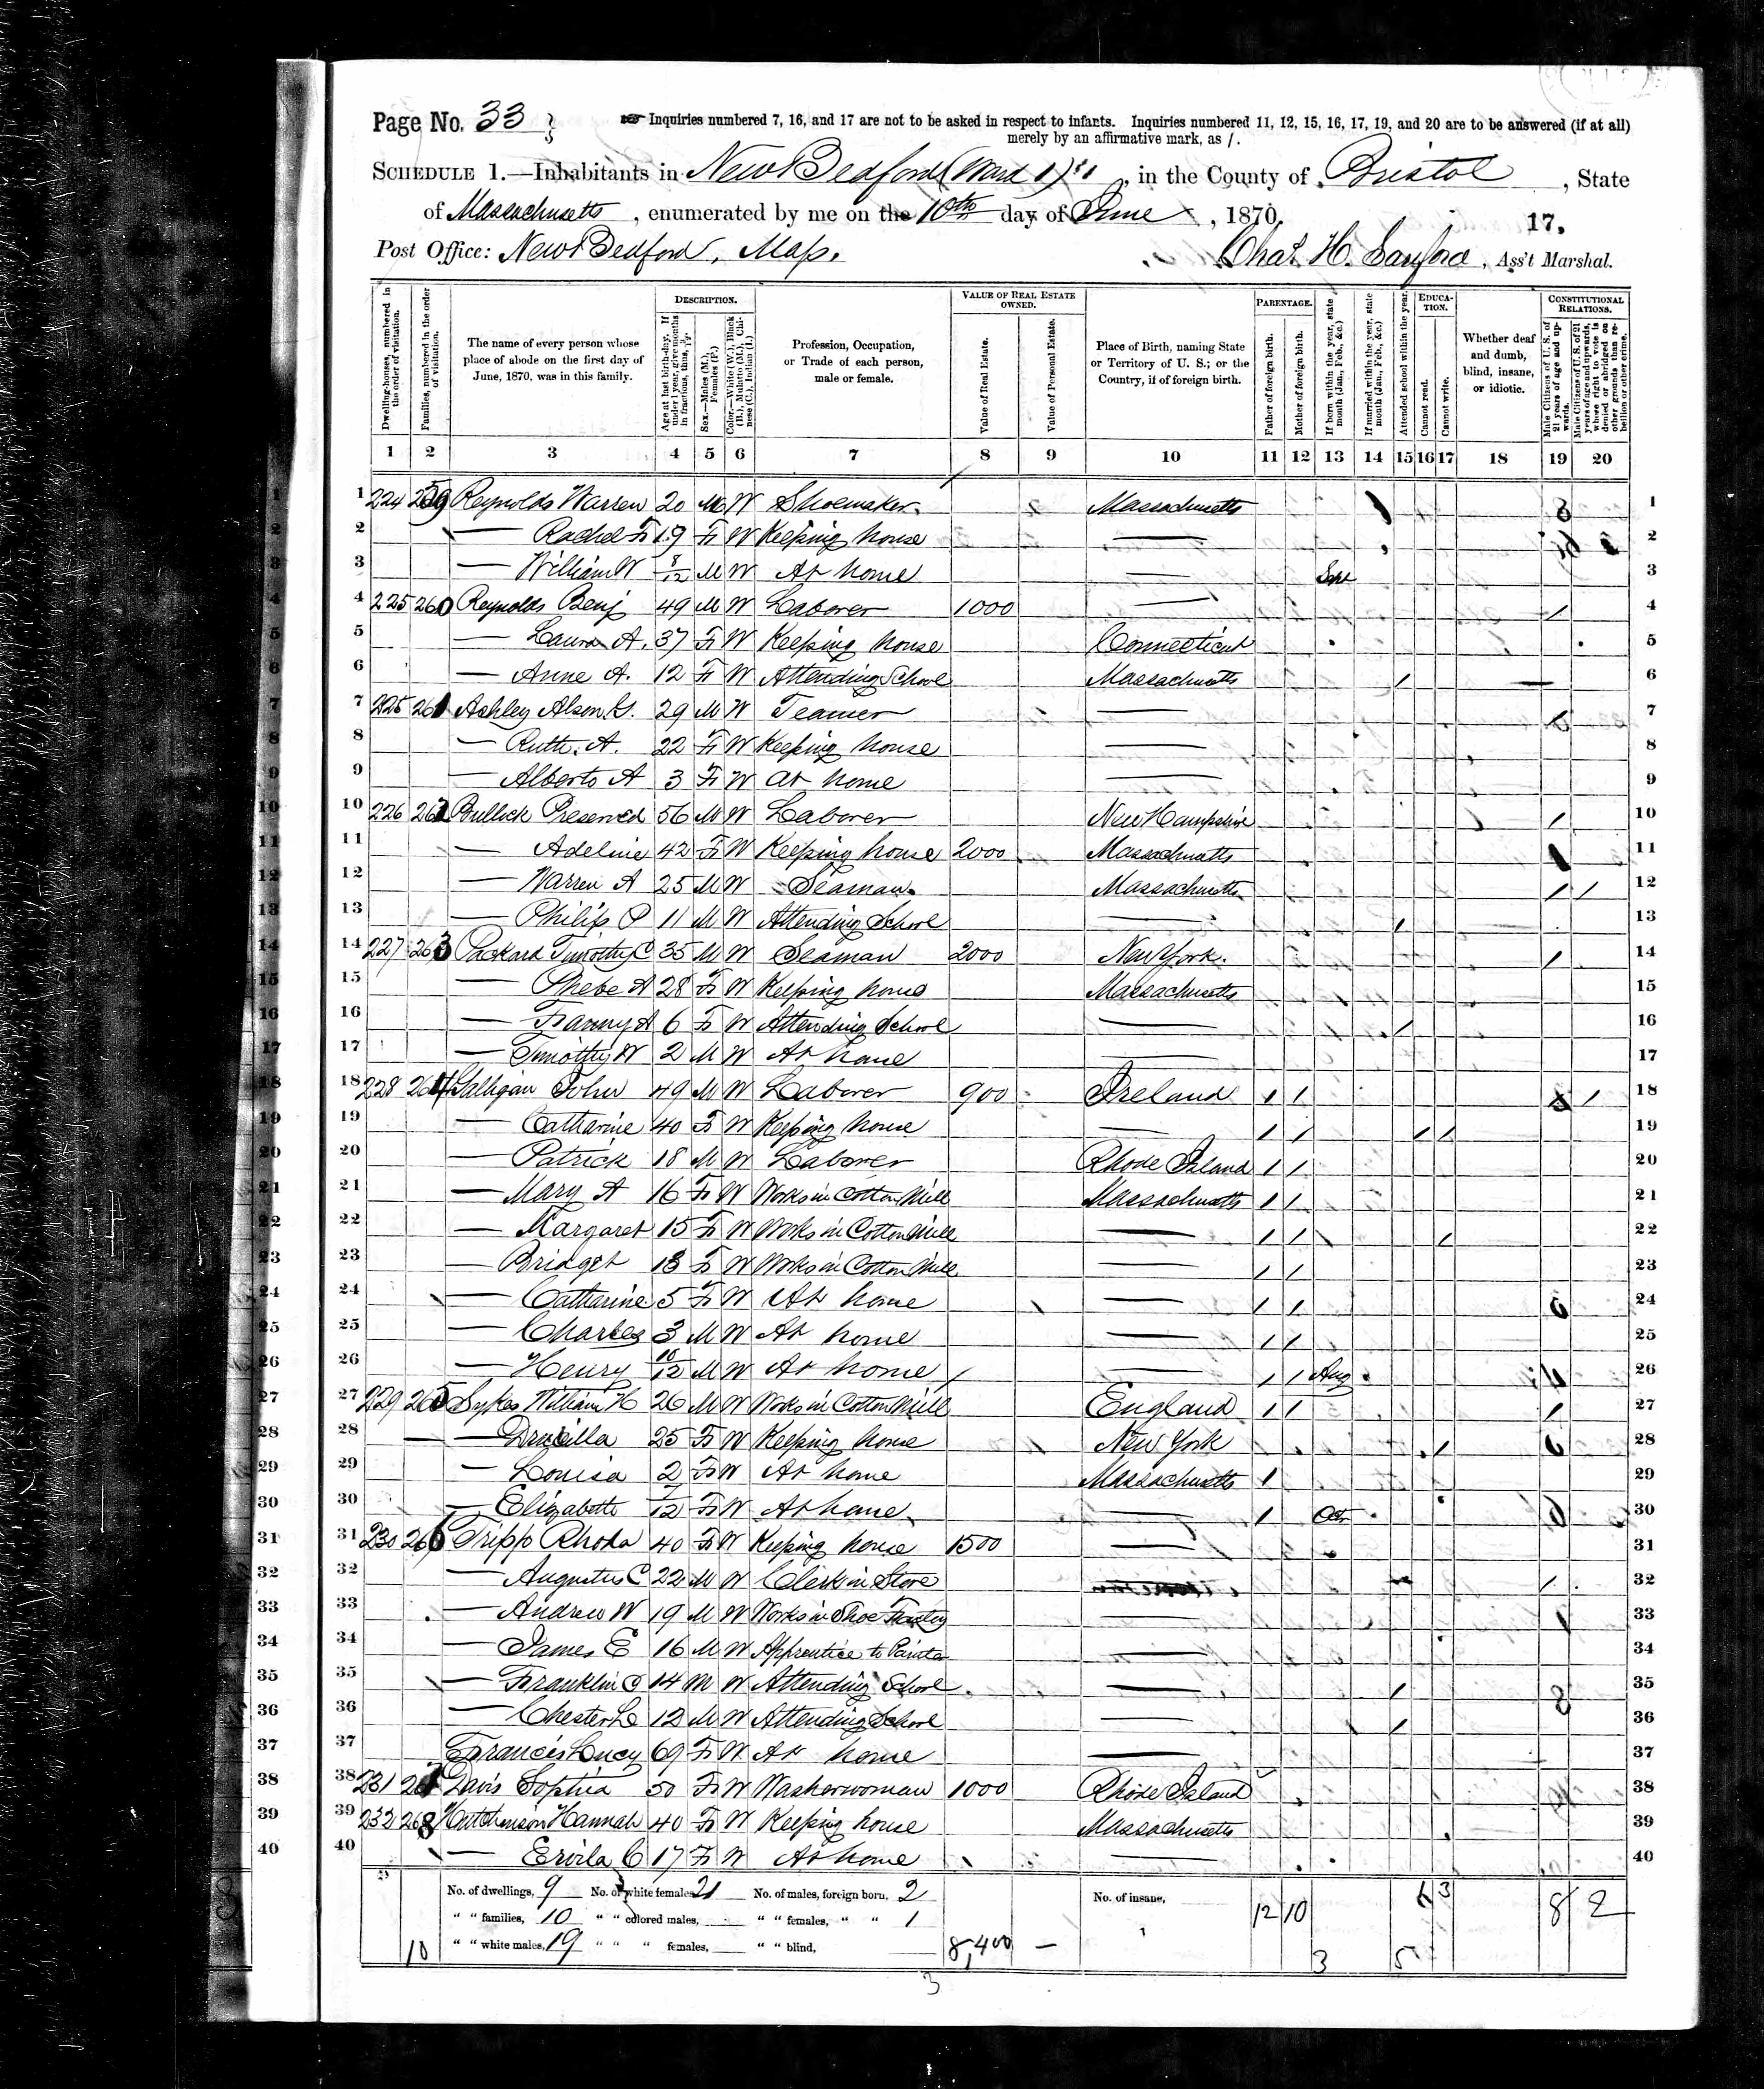 Page No. 33
Inquiries numbered 7, 16, and 17 are not to be asked in respect to infants. Inquiries numbered 11, 12, 15, 16, 17, 19, and 20 are to be answered (if at all)
merely by an affirmative mark, as /.
SCHEDULE 1.—Inhabitants in New Bedford (Ward 1), in the County of Bristol, State
of Massachusetts, enumerated by me on the 10th day of June, 1870.
17.
Post Office: New Bedford, Mass.
Chas. H. Sanford, Ass't Marshal.
Dwelling-houses, numbered in the order of visitation.
Families, numbered in the order of visitation.
The name of every person whose place of abode on the first day of June, 1870, was in this family.
DESCRIPTION.
Age at last birth-day. If under 1 year, give months in fractions, thus, 3/12.
Sex.—Males (M.), Females (F.)
Color.—White (W.), Black (B.), Mulatto (M.), Chinese (C.), Indian (I.)
Profession, Occupation, or Trade of each person, male or female.
VALUE OF REAL ESTATE OWNED.
Value of Real Estate.
Value of Personal Estate.
Place of Birth, naming State or Territory of U. S.; or the Country, if of foreign birth.
PARENTAGE.
Father of foreign birth.
Mother of foreign birth.
If born within the year, state month (Jan., Feb., &c.)
If married within the year, state month (Jan., Feb., &c.)
Attended school within the year.
EDUCATION.
Cannot read.
Cannot write.
Whether deaf and dumb, blind, insane, or idiotic.
CONSTITUTIONAL RELATIONS.
Male Citizens of U. S. of 21 years of age and upwards.
Male Citizens of U. S. of 21 years of age and upwards, whose right to vote is denied or abridged on other grounds than rebellion or other crime.
1 2 3 4 5 6 7 8 9 10 11 12 13 14 15 16 17 18 19 20
1 224 259 Reynolds Warren 20 M W Shoemaker Massachusetts 1
2 — Rachel F 19 F W Keeping house — 2
3 — William W 8/12 M W At home — Sept 3
4 225 260 Reynolds Benj 49 M W Laborer 1000 — / 4
5 — Laura A. 37 F W Keeping house Connecticut 5
6 — Anne A. 12 F W Attending School Massachusetts / 6
7 225 261 Ashley Alson G. 29 M W Teamer — 7
8 — Ruth A. 22 F W Keeping house — 8
9 — Alberto A 3 F W at home — 9
10 226 262 Bullick Preserved 56 M W Laborer New Hampshire / 10
11 — Adeline 42 F W Keeping house 2000 Massachusetts 11
12 — Warren A 25 M W Seaman Massachusetts / / 12
13 — Philip P 11 M W Attending School — / 13
14 227 263 Packard Timothy C 35 M W Seaman 2000 New York / 14
15 — Phebe A 28 F W Keeping house Massachusetts 15
16 — Fanny A 6 F W Attending School — / 16
17 — Timothy W 2 M W At home — 17
18 228 264 Galligan John 49 M W Laborer 900 Ireland / / / 18
19 — Catharine 40 F W Keeping house — / / / / 19
20 — Patrick 18 M W Laborer Rhode Island / / 20
21 — Mary A 16 F W Works in Cotton Mill Massachusetts / / 21
22 — Margaret 15 F W Works in Cotton Mill — / / / 22
23 — Bridget 13 F W Works in Cotton Mill — / / 23
24 — Catharine 5 F W At home — / / 24
25 — Charles 3 M W At home — / / 25
26 — Henry 10/12 M W At home — / / Aug 26
27 229 265 Sykes William H 26 M W Works in Cotton Mill England / / / 27
28 — Drucilla 25 F W Keeping home New York / 28
29 — Louisa 2 F W At home Massachusetts / 29
30 — Elizabeth 7/12 F W At home — / Oct 30
31 230 266 Tripp Rhoda 40 F W Keeping house 1500 — 31
32 — Augustus C 22 M W Clerk in Store / 32
33 — Andrew W 19 M W Works in Shoe Factory — 33
34 — James E 16 M W Apprentice to Painter — 34
35 — Franklin C 14 M W Attending School — / 35
36 — Chester L 12 M W Attending School — / 36
37 Francis Lucy 69 F W At home — 37
38 231 267 Davis Sophia 50 F W Washerwoman 1000 Rhode Island 38
39 232 268 Hutchinson Hannah 40 F W Keeping house Massachusetts 39
40 — Ervila C 17 F W At home — 40
No. of dwellings, 9 No. of white females, 21 No. of males, foreign born, 2 No. of insane,
" " families, 10 " " colored males, " " females, " " 1 12 10 6 3 8 2
10 " " white males, 19 " " " females, " " blind, 8,400 — 3 5
3